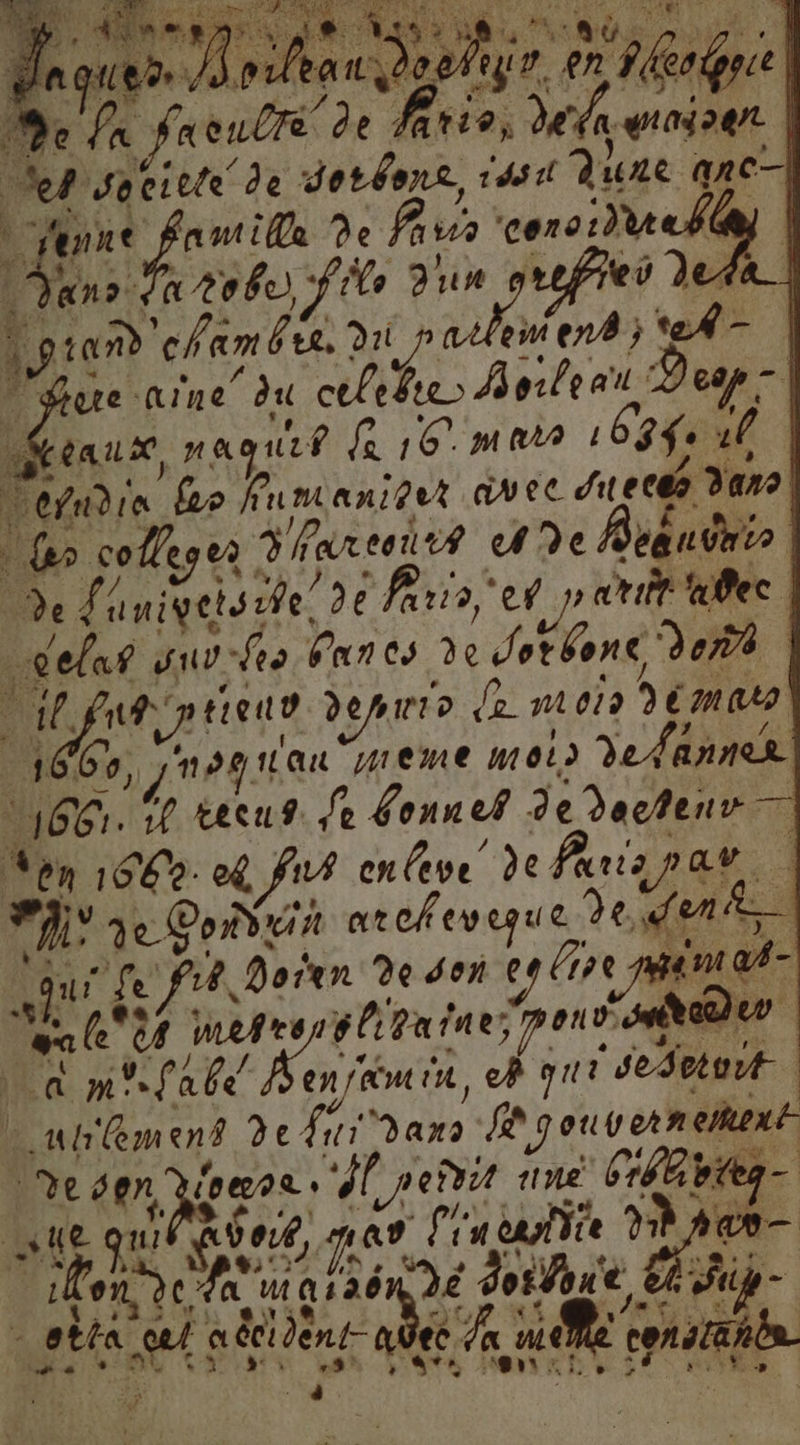 Jaques Boileau Docteur en Theologie
De la faculté de Paris, de la maison
et societé de sorbone, issu d'une anc-
ienne famille de Paris considerable
dans la robe, fils d'un greffier de la
grand chambre du parlement; et
frere ainé du celebre Boileau Desp-
reaux, naquit le 16 mars 1634. il
etudia les humanitez avec succés dans
les colleges d'harcourt et de Beauvais
de l'université de Paris, et parut avec
eclat sur les bancs de sorbone, dont
il fut prieur depuis le mois de mars
1660, jusqu'au meme mois de l'année
1661. il recut le bonnet de docteur
en 1662. et fut enlevé de Paris par
Mr. de Gondrin archeveque de Sens
qui le fit Doien de son eglise primat-
iale et metropolitaine, pour succeder
a mr. l'abé Benjamin, et qui se servit
utilement de lui dans le gouvernement
de son diocese. Il perdit une bibliteq-
ue qui avoit, par l'incendie du pav-
illon de la maison de sorbone, et sup-
orta cet accident avec la meme constance